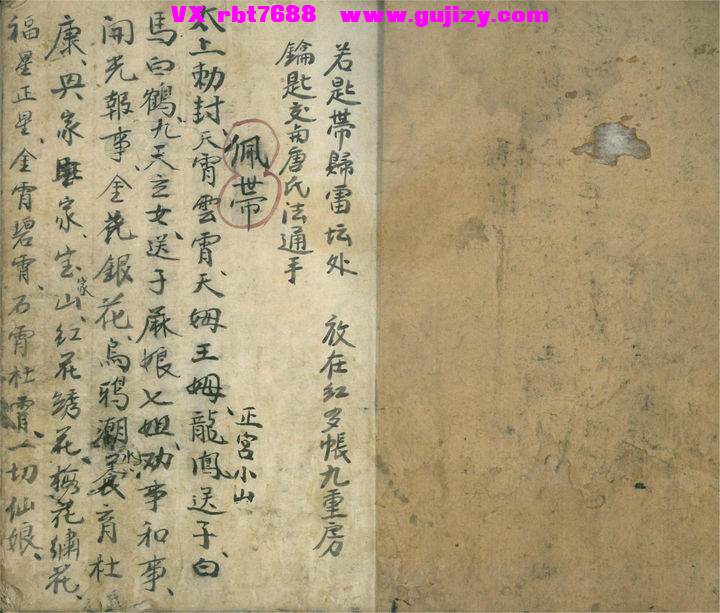 VX rbt7688 www.gujizy.com
若匙带歸雷坛处 放在红罗帳九重房
鑰匙交與唐氏法通手
佩带
正宫小山
太上勅封天霄雲霄天姆王姆龍鳳送子白
馬白鶴九天玄女送子麻娘七姐劝事和事
開光報事金花銀花烏鴉潮水 育社
康興家 家宝山家红花綉花梅花繡花
福星正星金霄碧霄石霄社霄一切仙娘